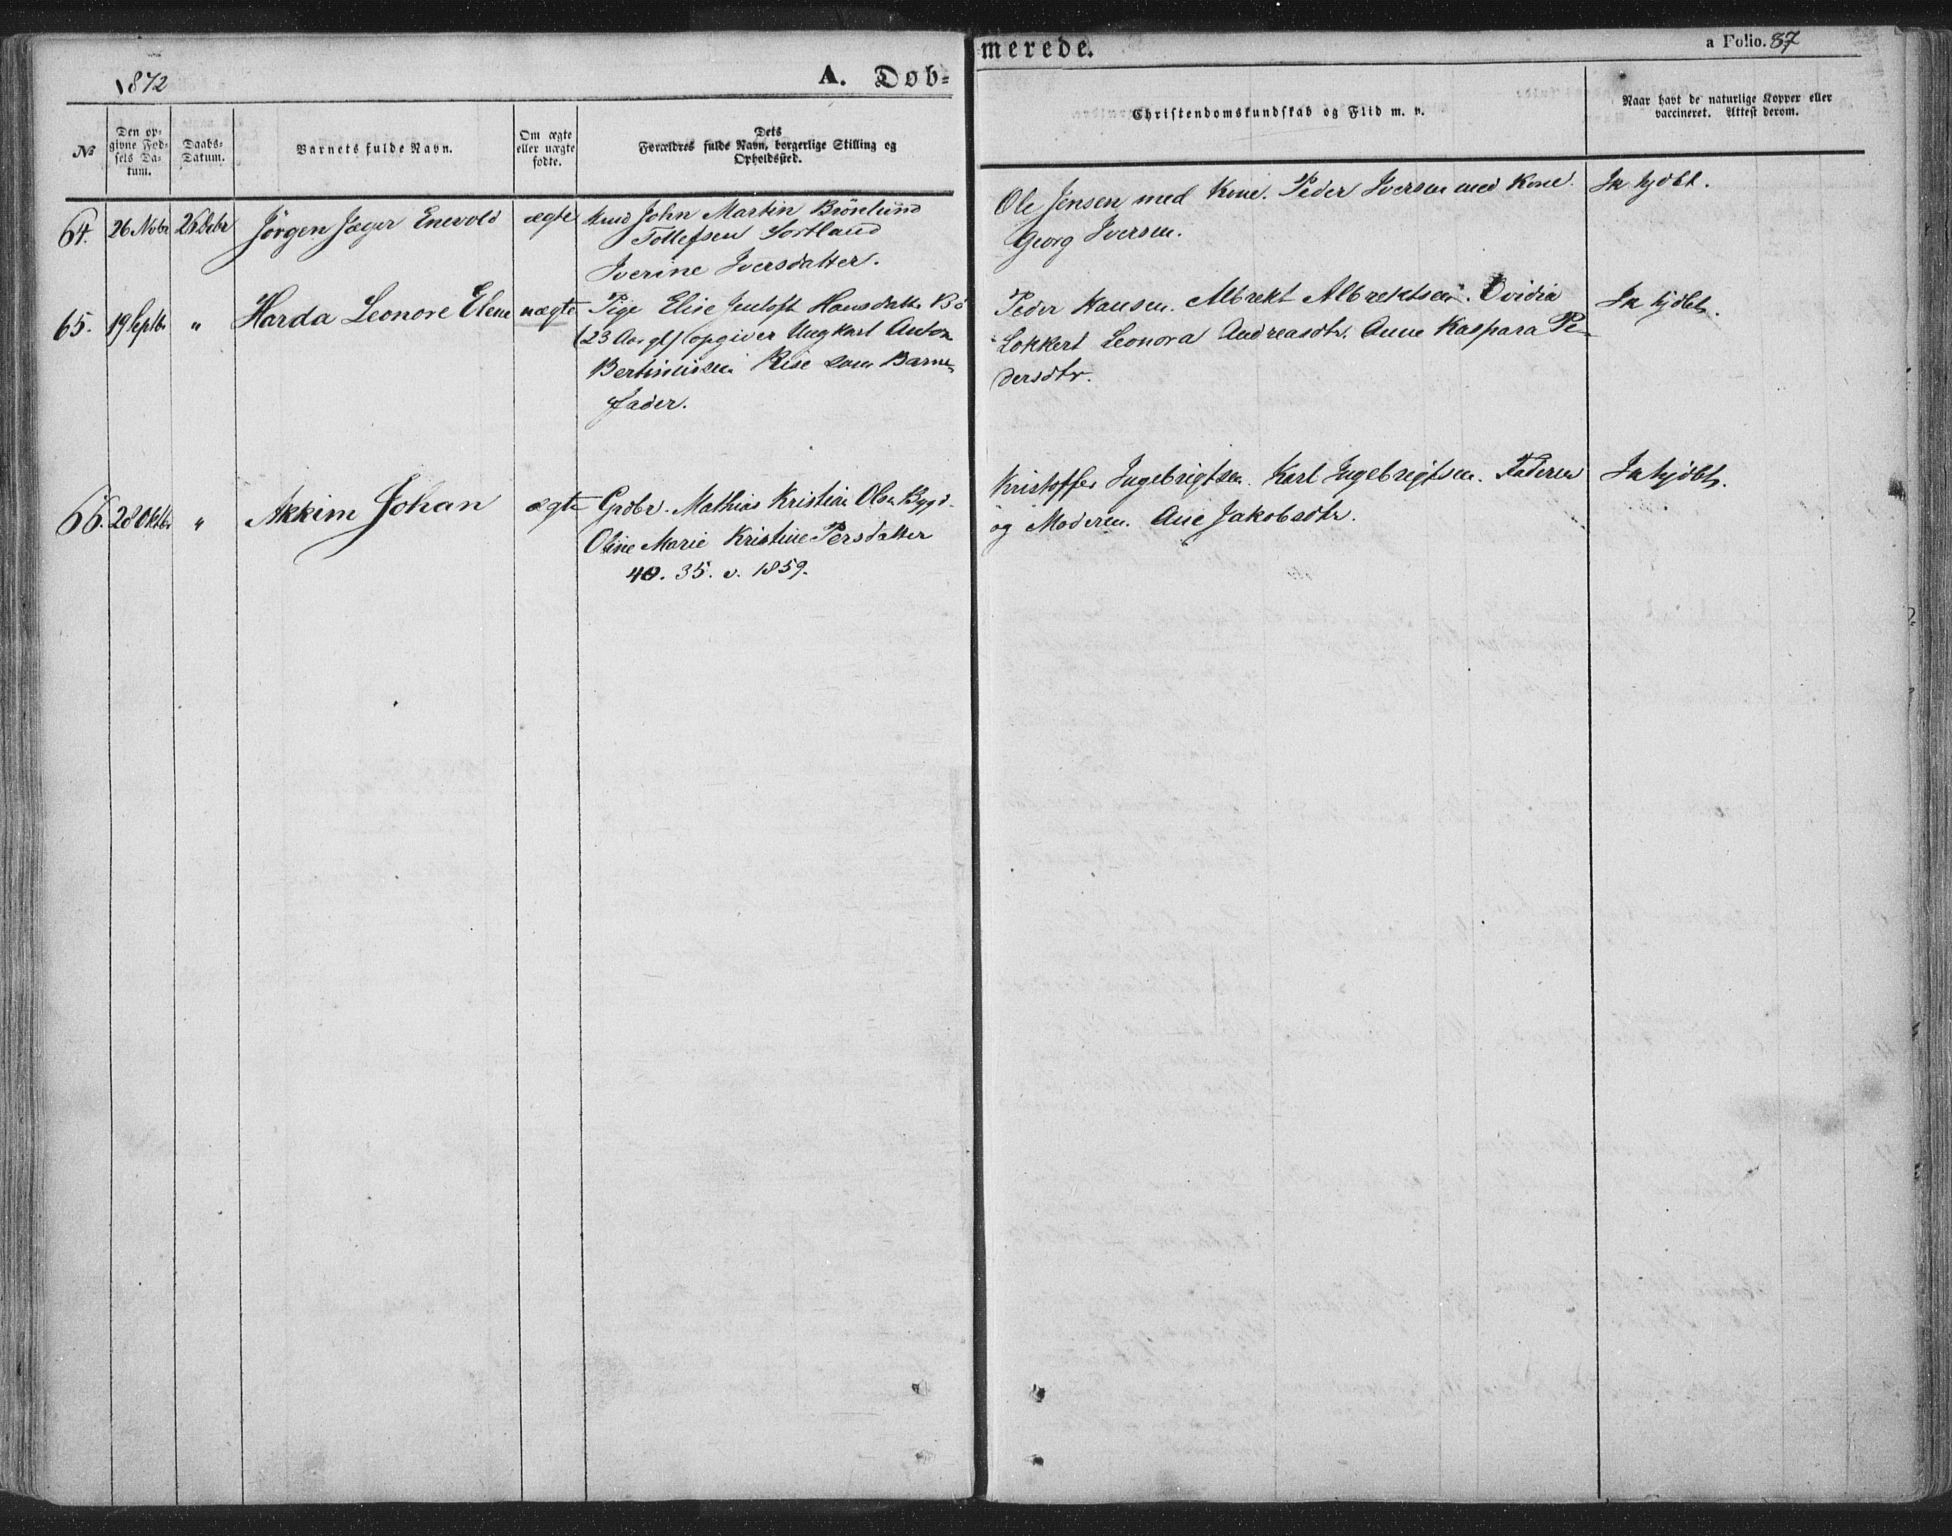 1872
A. Døb-
merede.
a Folio. 87
No
Den op-
givne Fød-
sels Da-
tum.
Daabs-
Datum.
Barnets fulde Navn.
Om ægte
eller uægte
fødte.
Dets
Forældres fulde Navn, borgerlige Stilling og
Opholdssted.
Christendomskundskab og Flid m. v.
Naar havt de naturlige Kopper eller
vaccineret. Attest derom.
64. 26 Novbr 26 Debr Jørgen Jæger Enevold ægte John Martin Brönlund
Tollefsen Sortland
Iverine Iversdatter.
Ole Jensen med Kone. Peder Iversen med Kone.
Georg Iversen.
Ja hjdbt.
65. 19 Septbr " Harda Leonore Elene uægte Pige Elise Jentoft Hansdatter Bö
(23 Aar gl) (opgiver Ungkarl Anton
Bertinussen Rise som Barne-
fader.
Peder Hansen. Albrekt Albrektsen. Ovidia
Lokkert Leonora Andreasdtr. Anne Kaspara Pe-
dersdtr.
Ja hjdbt.
66. 28 Oktbr " Akkim Johan ægte Grdbr. Mathias Kristian Olsen Bygd.
Oline Marie Kristine Persdatter
40. 35. v. 1859.
Kristoffer Ingebrigtsen. Karl Ingebrigtsen. Faderen
og Moderen. Ane Jakobsdtr.
Ja hjdbt.